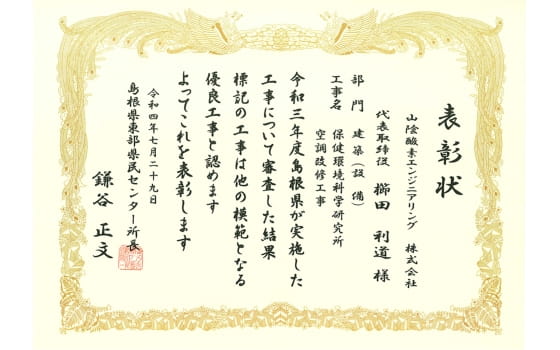 表彰状
山陰酸素エンジニアリング 株式会社
代表取締役 櫛田 利道 様
部門 建築(設備)
工事名 保健環境科学研究所
空調改修工事
令和三年度島根県が実施した
工事について審査した結果
標記の工事は他の模範となる
優良工事と認めます
よってこれを表彰します
令和四年七月二十九日
島根県東部県民センター所長
鎌谷 正文